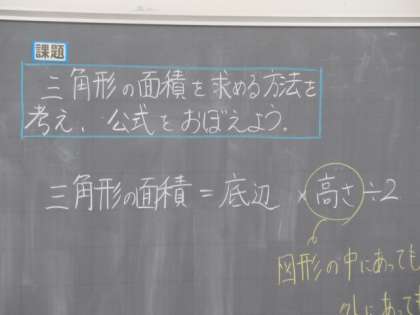 課題
三角形の面積を求める方法を
考え、公式をおぼえよう。
三角形の面積=底辺×高さ÷2
図形の中にあっても
外にあっても